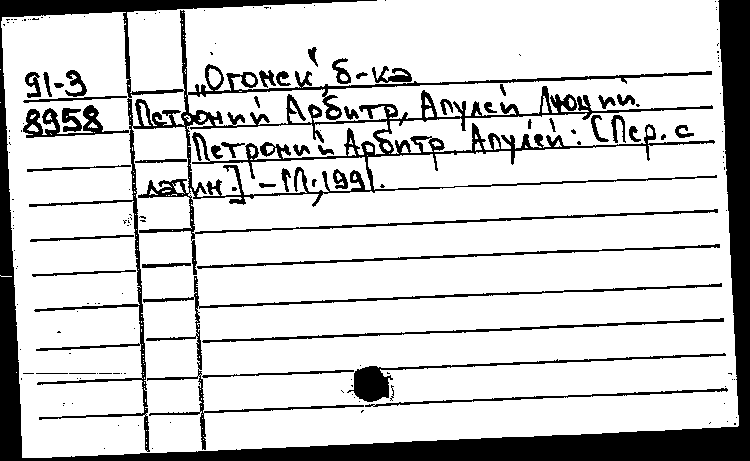 91-3 „Огонек", б-ка
8958 Петроний Арбитр, Апулей Люций.
Петроний Арбитр. Апулей: [Пер. с
латин.]. - М., 1991.